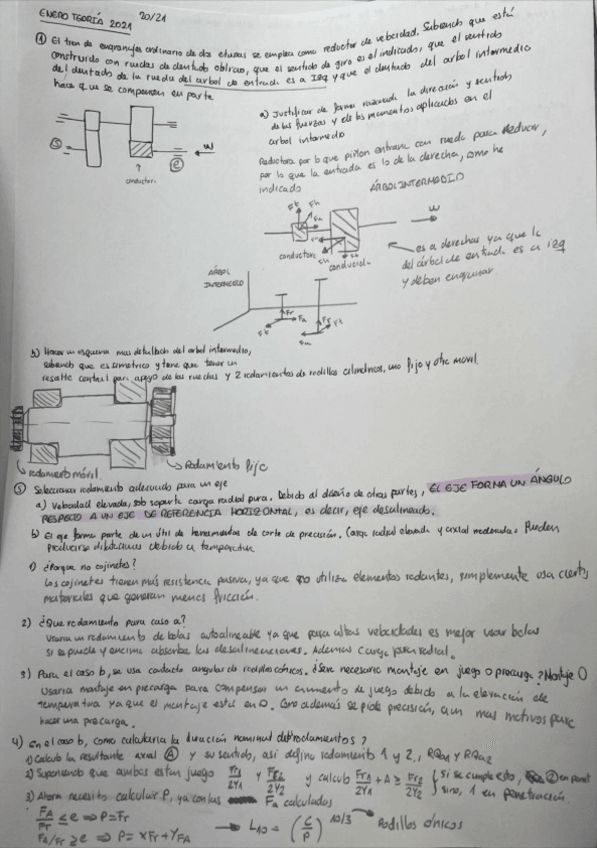 ENERO TEORÍA 2021 20/21
① El tren de engranajes ordinario de dos etapas se emplea como reductor de velocidad. Sabiendo que está
construido con ruedas de dentado oblicuo, que el sentido de giro es el indicado, que el sentido
del dentado de la rueda del arbol de entrada es a izq y que el dentado del arbol intermedio
hace que se compensen en parte
a) Justificar de forma razonada la dirección y sentido
de las fuerzas y de los momentos aplicados en el
arbol intermedio
Reductora por lo que piñon entrane con rueda para reducir,
por lo que la entrada es lo de la derecha, como he
indicado
S
e
w
conductor
ÁRBOL INTERMEDIO
Ft
Fa
w
conductora
conducida
es a derechas ya que la
del árbol de entrada es a izq
y deben engranar
ÁRBOL
INTERMEDIO
Fr
Fa
Ft
Fr
Ft
Fa
b) Hacer un esquema mas detallado del arbol intermedio,
sabiendo que es simetrico y tiene que tener un
resalte central para apoyo de las ruedas y 2 rodamientos de rodillos cilindricos, uno fijo y otro movil.
rodamiento móvil
Rodamiento fijo
⑤ Seleccionar rodamiento adecuado para un eje
a) Velocidad elevada, sob soporte carga radial pura. Debido al diseño de otras partes, EL EJE FORMA UN ÁNGULO
RESPECTO A UN EJE DE REFERENCIA HORIZONTAL, es decir, eje desalineado.
b) El eje forma parte de un útil de herramientas de corte de precisión. Carga radial elevada y axial moderada. Pueden
producirse dilataciones debido a temperatura
1) ¿Porque no cojinetes?
Los cojinetes tienen más resistencia pasiva, ya que no utiliza elementos rodantes, simplemente usa ciertos
materiales que generan menos fricción.
2) ¿Que rodamiento para caso a?
Usaria un rodamiento de bolas autoalineable ya que para altas velocidades es mejor usar bolas
si se puede y encima absorbe las desalineaciones. Ademas carga pura radial.
3) Para el caso b, se usa contacto angular de rodillos cónicos. ¿Sere necesario montaje en juego o precarga? Montaje O
Usaria montaje en precarga para compensar un aumento de juego debido a la elevación de
temperatura ya que el montaje está en O. Como además se pide precisión, aun mas motivos para
hacer una precarga.
4) en el caso b, como calcularia la duración nominal de rodamientos?
1) Calculo la resultante axial A y su sentido, asi defino rodamiento 1 y 2, RQa1 y RQa2
2) Suponiendo que ambos estan juego Fr1/2Y1 y Fr2/2Y2 y calculo Fr1/2Y1 + A ≥ Fr2/2Y2 { si se cumple esto, 2 en penet
sino, 1 en penetración.
3) Ahora necesito calcular P, ya con las Fa calculadas
Fa/Fr ≤ e ⇒ P = Fr
Fa/Fr ≥ e ⇒ P = XFr + YFa
→ L10 = (C/P)^10/3 → Rodillos cónicos